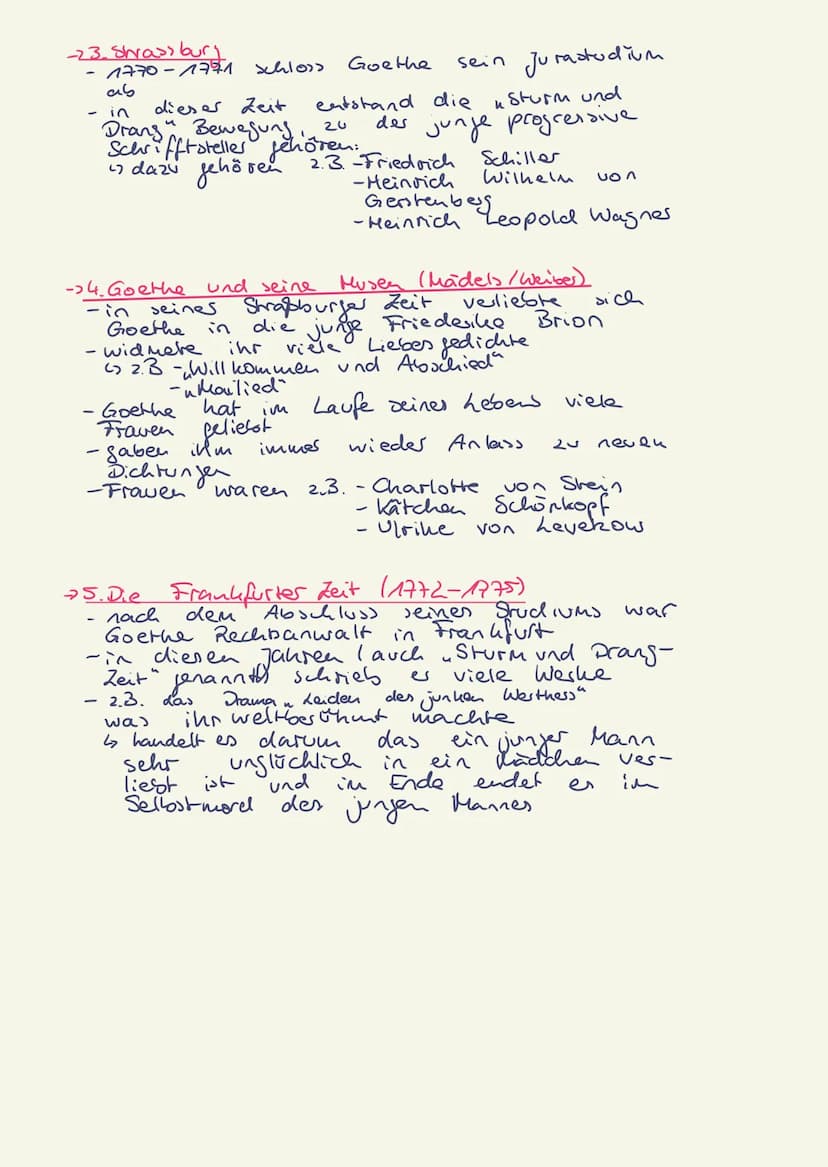 →3. Strassburg
- 1770-1771 schloss Goethe sein Jurastudium
ab
- in dieser Zeit entstand die „Sturm und
Drang" Bewegung, zu der junge progressive
Schrifftsteller gehören:
↳ dazu gehören z.B. -Friedrich Schiller
-Heinrich Wilhelm von
Gerstenberg
-Heinrich Leopold Wagner
→4. Goethe und seine Musen (Mädels/Weiber)
-in seiner Straßburger Zeit verliebte sich
Goethe in die junge Friederike Brion
- widmete ihr viele Liebesgedichte
↳ z.B -„Willkommen und Abschied"
-„Mailied"
- Goethe hat im Laufe seines Lebens viele
Frauen geliebt
- gaben ihm immer wieder Anlass zu neuen
Dichtungen
-Frauen waren z.B. - Charlotte von Stein
- Kätchen Schönkopf
- Ulrike von Levekow
→5. Die Frankfurter Zeit (1772-1775)
- nach dem Abschluss seines Studiums war
Goethe Rechtsanwalt in Frankfurt
-in diesen Jahren (auch „Sturm und Drang-
Zeit" genannt) schrieb er viele Werke
- z.B. das Drama „Leiden des junken Werthers"
was ihr weltberühmt machte
↳ handelt es darum das ein junger Mann
sehr unglücklich in ein Mädchen ver-
liebt ist und im Ende endet er im
Selbstmord des jungen Mannes